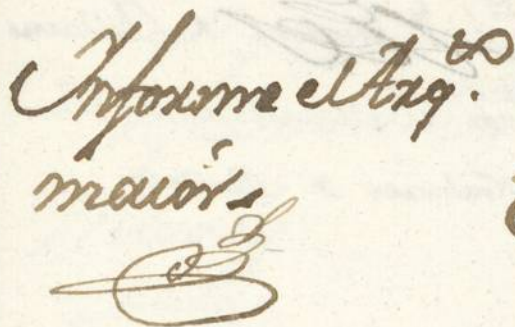 Informe el Arq.to
maiór.